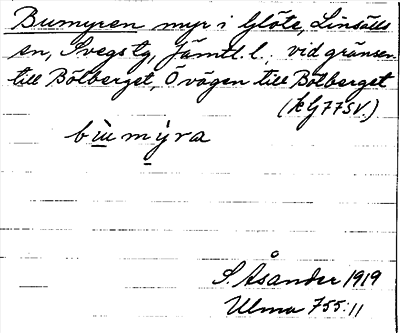 Bumyren myr i Glöte, Linsälls
sn, Svegs tg, Jämtl. l., vid gränsen
till Bölberget, O vägen till Bölberget
(kG77SV.)
bu̲ my̲ra
S. Åsander 1919
Ulma 755:11